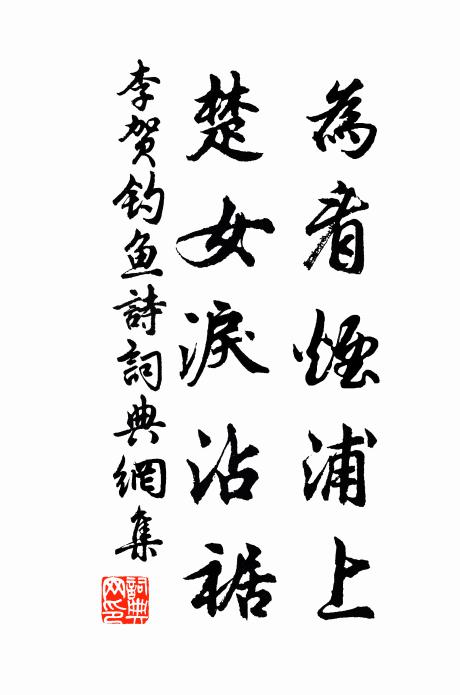 為看煙浦上
楚女淚沾裾
李贺钓鱼詩詞典網集
詞典网印